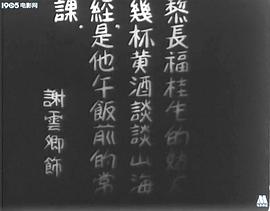 1905电影网
黎長福桂生的姑丈
幾杯黄酒談談山海
經，是他午飯前的常
課。
謝雲卿飾
M